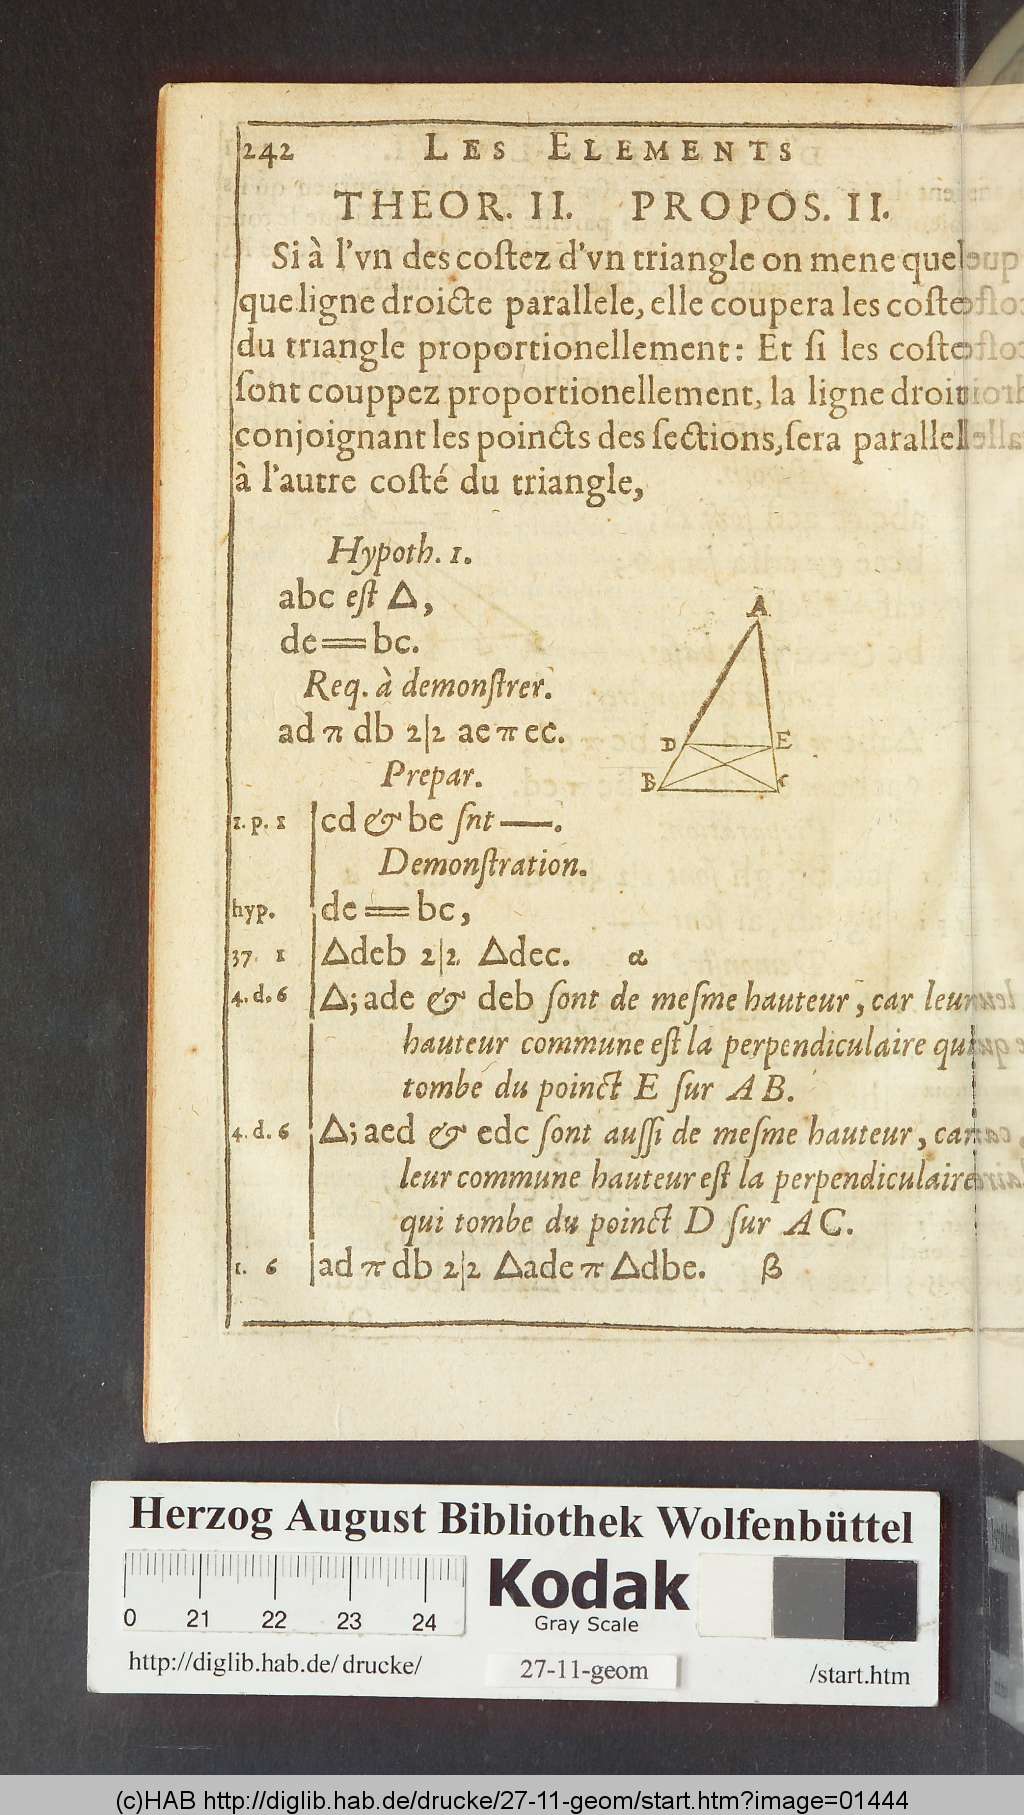 242 LES ELEMENTS
THEOR. II. PROPOS. II.
Si à l'vn des coſtez d'vn triangle on mene quel
que ligne droicte parallele, elle coupera les coſte
du triangle proportionellement: Et ſi les coſte
ſont couppez proportionellement, la ligne droi
conjoignant les poincts des ſections, ſera parallel
à l'autre coſté du triangle,
Hypoth. 1.
abc eſt Δ,
de═bc.
Req. à demonſtrer.
ad π db 2|2 ae π ec.
Prepar.
1. p. 1 cd & be ſnt —.
Demonſtration.
hyp. de═bc,
37. 1 Δdeb 2|2 Δdec. α
4. d. 6 Δ; ade & deb ſont de meſme hauteur, car leur
hauteur commune eſt la perpendiculaire qui
tombe du poinct E ſur AB.
4. d. 6 Δ; aed & edc ſont auſſi de meſme hauteur, car
leur commune hauteur eſt la perpendiculaire
qui tombe du poinct D ſur AC.
1. 6 ad π db 2|2 Δade π Δdbe. β
A
D E
B C
Herzog August Bibliothek Wolfenbüttel
0 21 22 23 24
Kodak
Gray Scale
http://diglib.hab.de/drucke/ 27-11-geom /start.htm
(c)HAB http://diglib.hab.de/drucke/27-11-geom/start.htm?image=01444